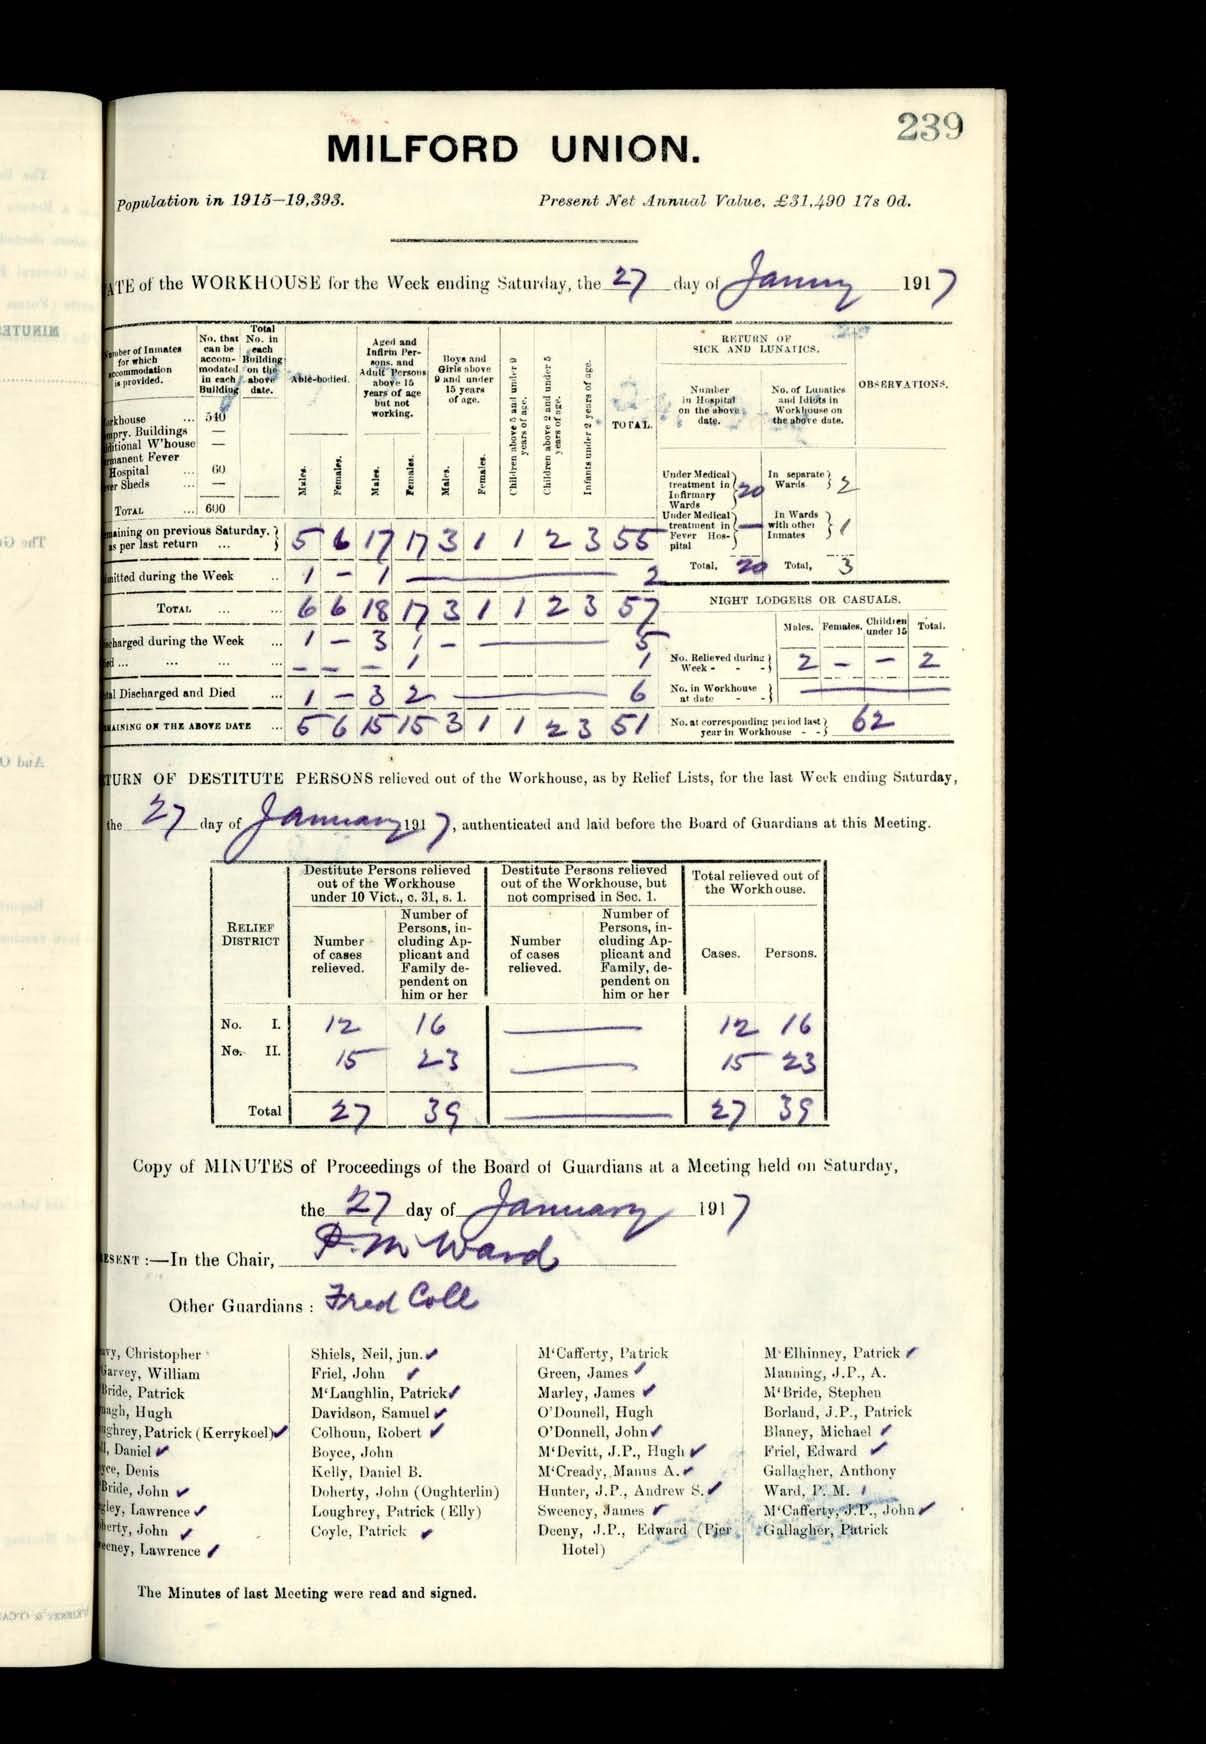 239
MILFORD UNION.
Population in 1915—19,393. Present Net Annual Value, £31,490 17s 0d.
ATE of the WORKHOUSE for the Week ending Saturday, the 27 day of January 1917
Number of Inmates for which accommodation is provided.
No. that can be accom- modated in each Building
Total No. in each Building on the above date.
Able-bodied.
Aged and Infirm Per- sons, and Adult Persons above 15 years of age but not working.
Boys and Girls above 9 and under 15 years of age.
Children above 5 and under 9 years of age.
Children above 2 and under 5 years of age.
Infants under 2 years of age.
TOTAL.
RETURN OF SICK AND LUNATICS.
OBSERVATIONS.
Number in Hospital on the above date.
No. of Lunatics and Idiots in Workhouse on the above date.
Males. Females. Males. Females. Males. Females.
orkhouse ... 540
mpry. Buildings —
ditional W'house —
rmanent Fever
Hospital ... 60
ver Sheds ... —
TOTAL ... 600
Under Medical treatment in Infirmary Wards } 20
In separate Wards } 2
Under Medical treatment in Fever Hos- pital } —
In Wards with other Inmates } 1
Total, 20 Total, 3
maining on previous Saturday, as per last return ... } 5 6 17 17 3 1 1 2 3 55
mitted during the Week .. 1 – 1 — 2
TOTAL ... ... 6 6 18 17 3 1 1 2 3 57
scharged during the Week ... 1 – 3 1 – — 5
ed ... ... ... ... – – – 1 1
tal Discharged and Died ... 1 – 3 2 — 6
MAINING ON THE ABOVE DATE ... 5 6 15 15 3 1 1 2 3 51
NIGHT LODGERS OR CASUALS.
Males. Females. Children under 15 Total.
No. Relieved during Week - - - } 2 – – 2
No. in Workhouse at date - - } —
No. at corresponding period last year in Workhouse - - } 62
TURN OF DESTITUTE PERSONS relieved out of the Workhouse, as by Relief Lists, for the last Week ending Saturday,
the 27 day of January 1917, authenticated and laid before the Board of Guardians at this Meeting.
RELIEF DISTRICT
Destitute Persons relieved out of the Workhouse under 10 Vict., c. 31, s. 1.
Destitute Persons relieved out of the Workhouse, but not comprised in Sec. 1.
Total relieved out of the Workhouse.
Number of cases relieved.
Number of Persons, in- cluding Ap- plicant and Family de- pendent on him or her
Number of cases relieved.
Number of Persons, in- cluding Ap- plicant and Family, de- pendent on him or her
Cases. Persons.
No. I. 12 16 — 12 16
No. II. 15 23 — 15 23
Total 27 39 — 27 39
Copy of MINUTES of Proceedings of the Board of Guardians at a Meeting held on Saturday,
the 27 day of January 1917
ESENT :—In the Chair, P. M. Ward
Other Guardians : Fred Coll
avy, Christopher
Garvey, William
Bride, Patrick
nagh, Hugh
ughrey, Patrick (Kerrykeel) ✓
ll, Daniel ✓
yce, Denis
Bride, John ✓
gley, Lawrence ✓
herty, John ✓
eeney, Lawrence ✓
Shiels, Neil, jun. ✓
Friel, John ✓
M'Laughlin, Patrick ✓
Davidson, Samuel ✓
Colhoun, Robert ✓
Boyce, John
Kelly, Daniel B.
Doherty, John (Oughterlin)
Loughrey, Patrick (Elly)
Coyle, Patrick ✓
M'Cafferty, Patrick
Green, James ✓
Marley, James ✓
O'Donnell, Hugh
O'Donnell, John ✓
M'Devitt, J.P., Hugh ✓
M'Cready, Manus A. ✓
Hunter, J.P., Andrew S. ✓
Sweeney, James ✓
Deeny, J.P., Edward (Pier
Hotel)
M'Elhinney, Patrick ✓
Manning, J.P., A.
M'Bride, Stephen
Borland, J.P., Patrick
Blaney, Michael ✓
Friel, Edward ✓
Gallagher, Anthony
Ward, P. M. ✓
M'Cafferty, J.P., John ✓
Gallagher, Patrick
The Minutes of last Meeting were read and signed.